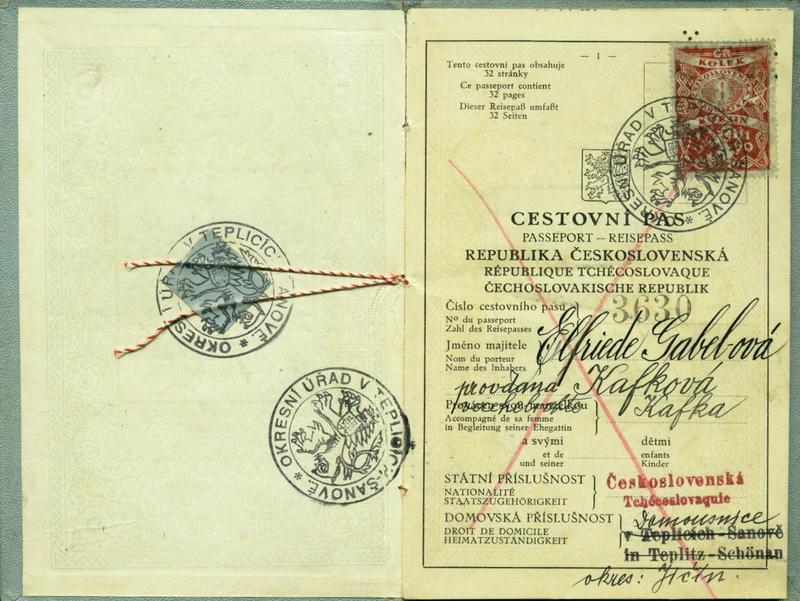 OKRESNÍ ÚŘAD V TEPLICÍCH-ŠANOVĚ. *
OKRESNÍ ÚŘAD V TEPLICÍCH-ŠANOVĚ. *
— 1 —
Tento cestovní pas obsahuje
32 stránky
Ce passeport contient
32 pages
Dieser Reisepaß umfaßt
32 Seiten
KOLEK
OKRESNÍ ÚŘAD V TEPLICÍCH-ŠANOVĚ. *
CESTOVNÍ PAS
PASSEPORT — REISEPASS
REPUBLIKA ČESKOSLOVENSKÁ
RÉPUBLIQUE TCHÉCOSLOVAQUE
ČECHOSLOVAKISCHE REPUBLIK
Číslo cestovního pasu
No du passeport
Zahl des Reisepasses
3630
Jméno majitele
Nom du porteur
Name des Inhabers
Elfriede Gabelová
provdaná Kafková
Kafka
Accompagné de sa femme
in Begleitung seiner Ehegattin
a svými dětmi
et de enfants
und seiner Kinder
STÁTNÍ PŘÍSLUŠNOST
NATIONALITÉ
STAATSZUGEHÖRIGKEIT
Československá
Tchécoslovaquie
DOMOVSKÁ PŘÍSLUŠNOST
DROIT DE DOMICILE
HEIMATZUSTÄNDIGKEIT
Domousnice
v Teplicich-Šanově
in Teplitz-Schönau
okres: Jičín.